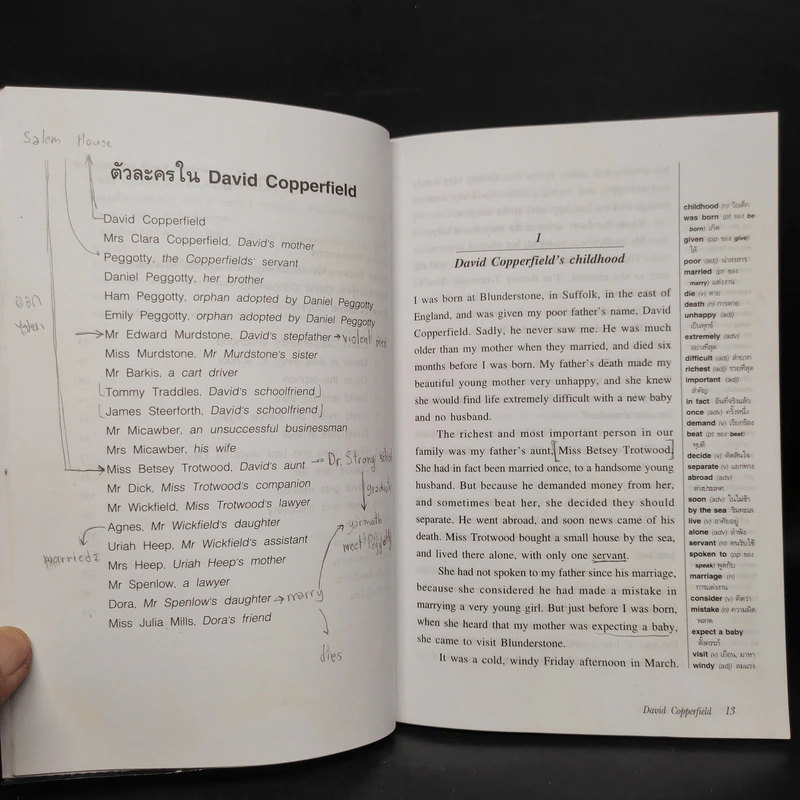 Salem House
ตัวละครใน David Copperfield
David Copperfield
Mrs Clara Copperfield, David's mother
Peggotty, the Copperfields' servant
Daniel Peggotty, her brother
Ham Peggotty, orphan adopted by Daniel Peggotty
Emily Peggotty, orphan adopted by Daniel Peggotty
Mr Edward Murdstone, David's stepfather → violent men
Miss Murdstone, Mr Murdstone's sister
Mr Barkis, a cart driver
[Tommy Traddles, David's schoolfriend]
[James Steerforth, David's schoolfriend]
Mr Micawber, an unsuccessful businessman
Mrs Micawber, his wife
Miss Betsey Trotwood, David's aunt → Dr. Strong school
Mr Dick, Miss Trotwood's companion
graduate
Mr Wickfield, Miss Trotwood's lawyer
Agnes, Mr Wickfield's daughter
yarmoth
meet Peggotty
Uriah Heep, Mr Wickfield's assistant
married 2
Mrs Heep, Uriah Heep's mother
Mr Spenlow, a lawyer
Dora, Mr Spenlow's daughter → marry
Miss Julia Mills, Dora's friend
dies
1
David Copperfield's childhood
I was born at Blunderstone, in Suffolk, in the east of
England, and was given my poor father's name, David
Copperfield. Sadly, he never saw me. He was much
older than my mother when they married, and died six
months before I was born. My father's death made my
beautiful young mother very unhappy, and she knew
she would find life extremely difficult with a new baby
and no husband.
The richest and most important person in our
family was my father's aunt, [Miss Betsey Trotwood.]
She had in fact been married once, to a handsome young
husband. But because he demanded money from her,
and sometimes beat her, she decided they should
separate. He went abroad, and soon news came of his
death. Miss Trotwood bought a small house by the sea,
and lived there alone, with only one servant.
She had not spoken to my father since his marriage,
because she considered he had made a mistake in
marrying a very young girl. But just before I was born,
when she heard that my mother was expecting a baby,
she came to visit Blunderstone.
It was a cold, windy Friday afternoon in March.
childhood (n) วัยเด็ก
was born (pt ของ be
born) เกิด
given (pp ของ give)
ให้
poor (adj) น่าสงสาร
married (pt ของ
marry) แต่งงาน
die (v) ตาย
death (n) การตาย
unhappy (adj)
เป็นทุกข์
extremely (adv)
อย่างที่สุด
difficult (adj) ลำบาก
richest (adj) รวยที่สุด
important (adj)
สำคัญ
in fact อันที่จริงแล้ว
once (adv) ครั้งหนึ่ง
demand (v) เรียกร้อง
beat (pt ของ beat)
ทุบตี
decide (v) ตัดสินใจ
separate (v) แยกทาง
abroad (adv)
ต่างประเทศ
soon (adv) ในไม่ช้า
by the sea ริมทะเล
live (v) อาศัยอยู่
alone (adv) ลำพัง
servant (n) คนรับใช้
spoken to (pp ของ
speak) พูดกับ
marriage (n)
การแต่งงาน
consider (v) คิดว่า
mistake (n) ความผิด
พลาด
expect a baby
ตั้งครรภ์
visit (v) เยือน, มาหา
windy (adj) ลมแรง
David Copperfield 13